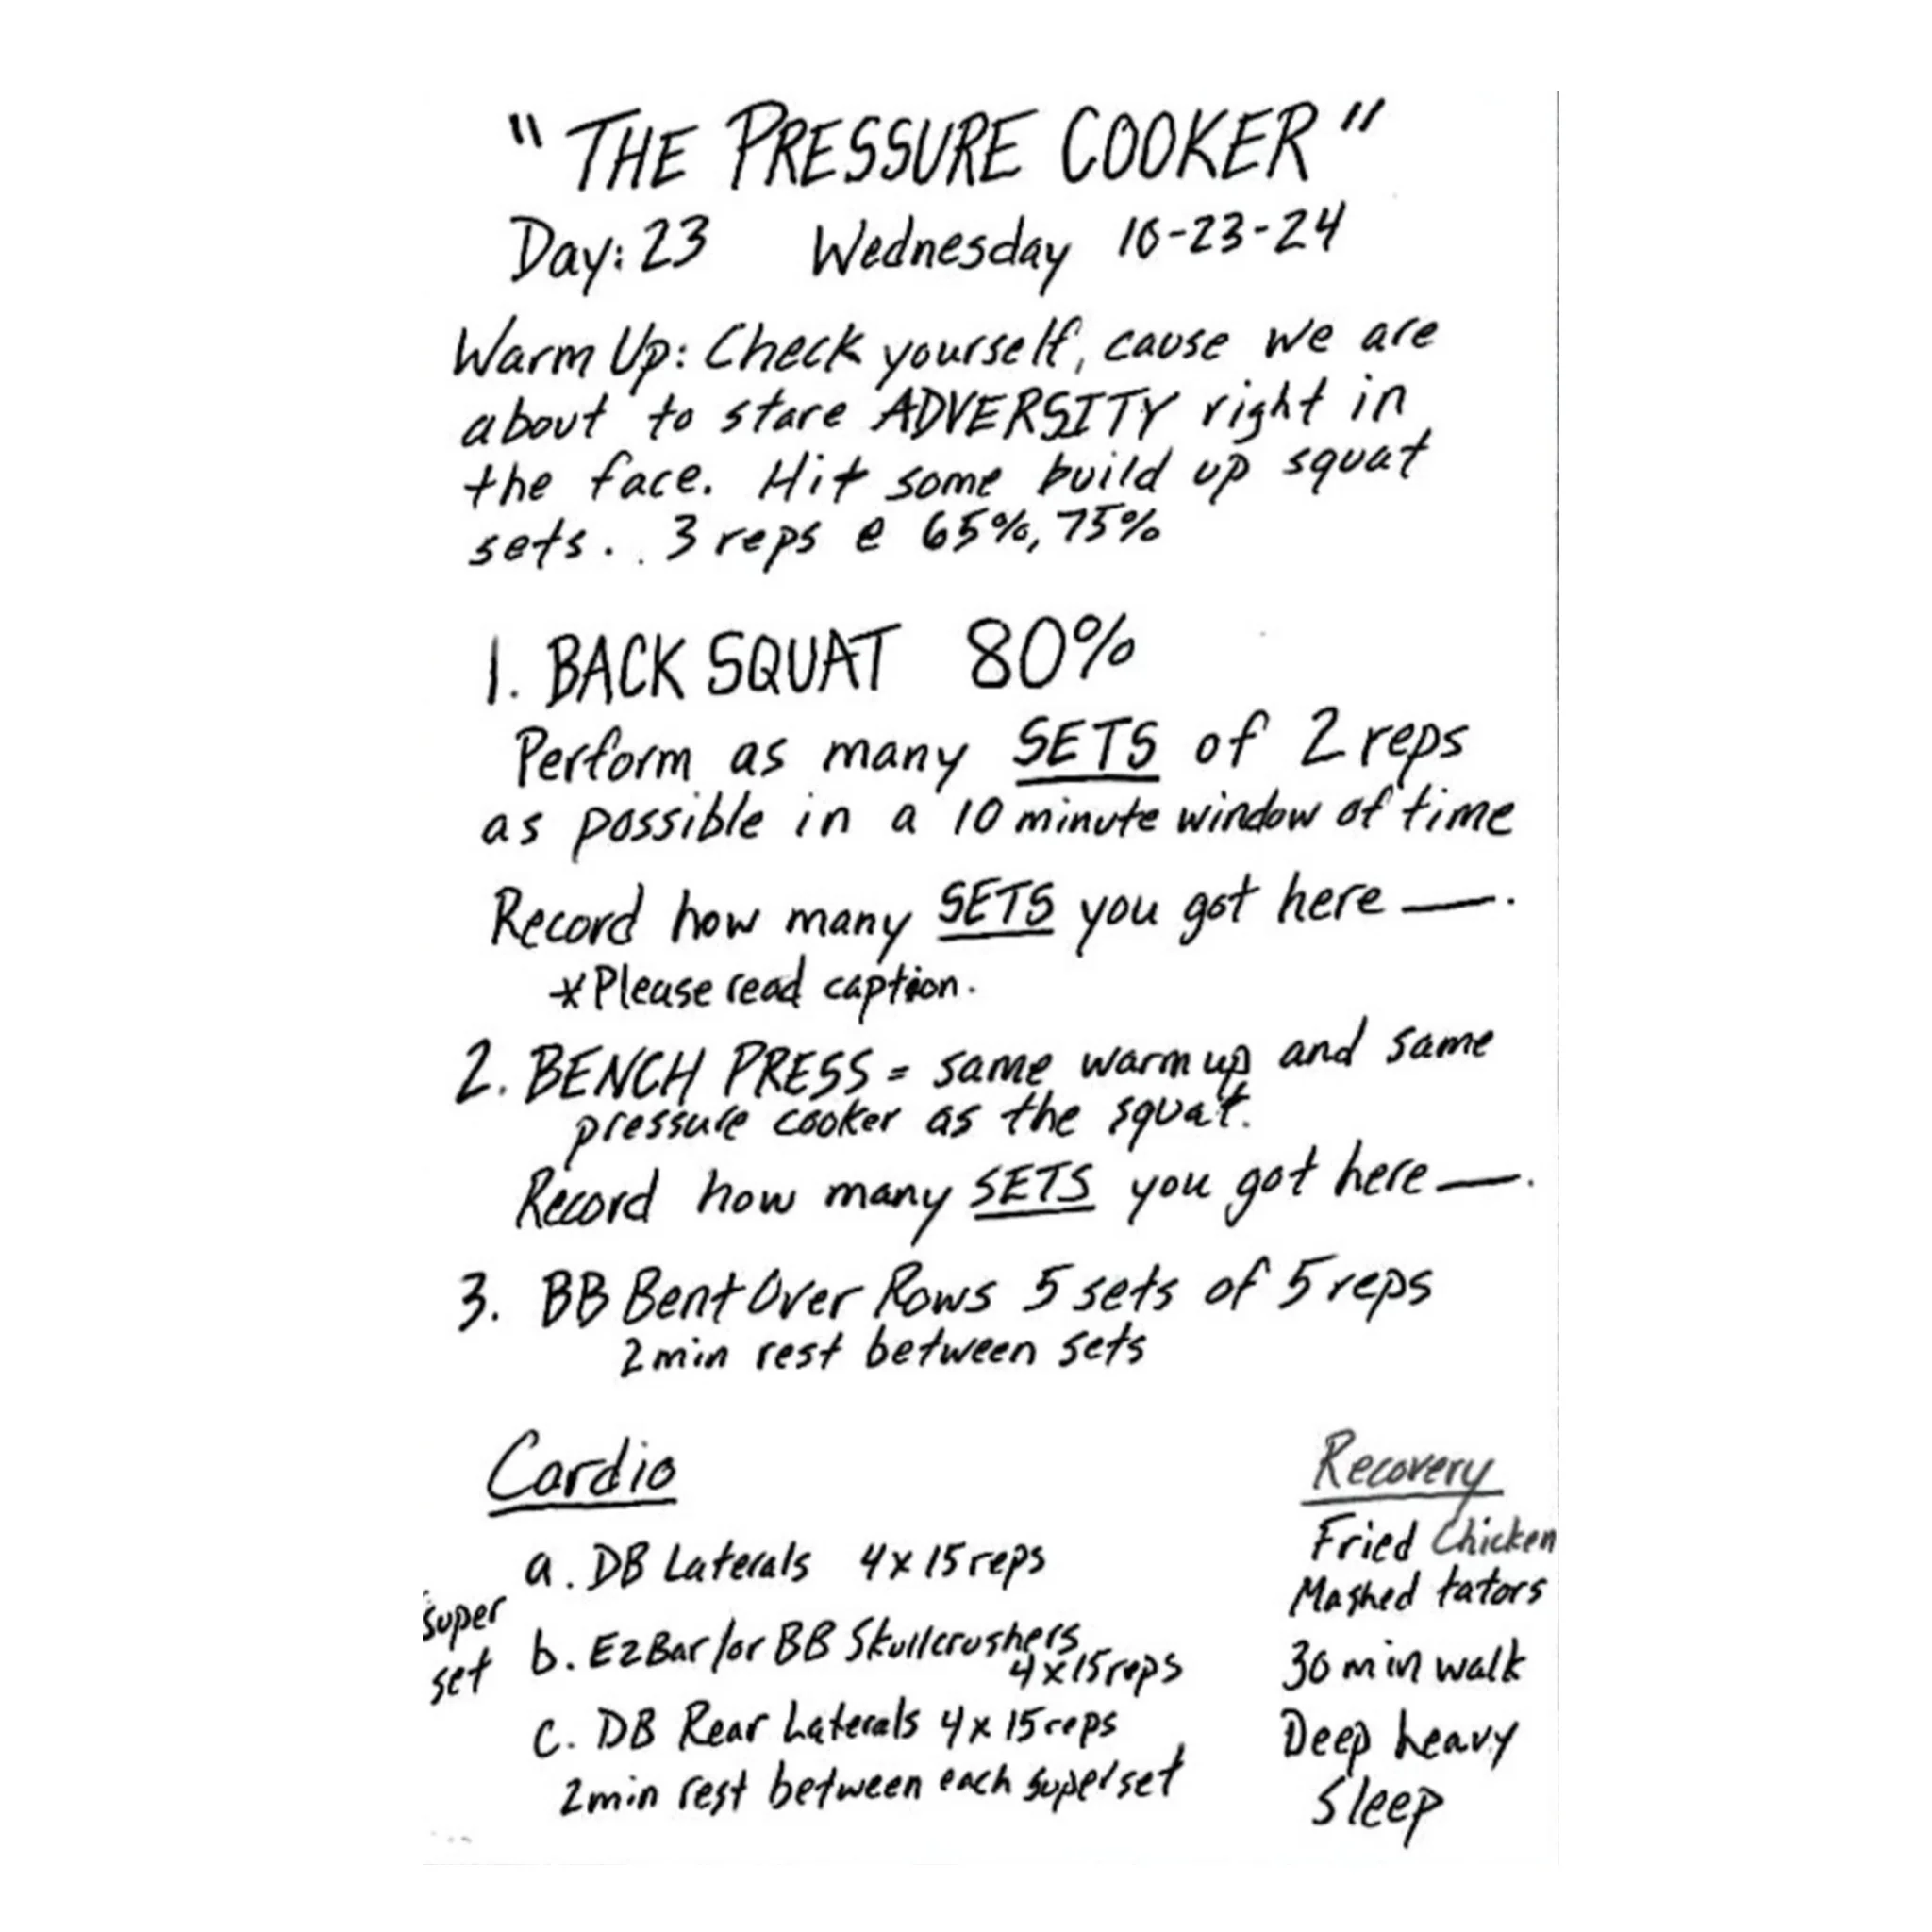 "THE PRESSURE COOKER"
Day: 23 Wednesday 10-23-24
Warm Up: Check yourself, cause we are
about to stare ADVERSITY right in
the face. Hit some build up squat
sets. . 3 reps @ 65%, 75%
1. BACK SQUAT 80%
Perform as many SETS of 2 reps
as possible in a 10 minute window of time
Record how many SETS you got here __.
*Please read caption.
2. BENCH PRESS = same warm up and same
pressure cooker as the squat.
Record how many SETS you got here __.
3. BB Bent Over Rows 5 sets of 5 reps
2min rest between sets
Cardio
super
set
a. DB Laterals 4x15 reps
b. EZ Bar/or BB Skullcrushers
4x15 reps
c. DB Rear Laterals 4x15 reps
2min rest between each superset
Recovery
Fried Chicken
Mashed tators
30 min walk
Deep heavy
sleep